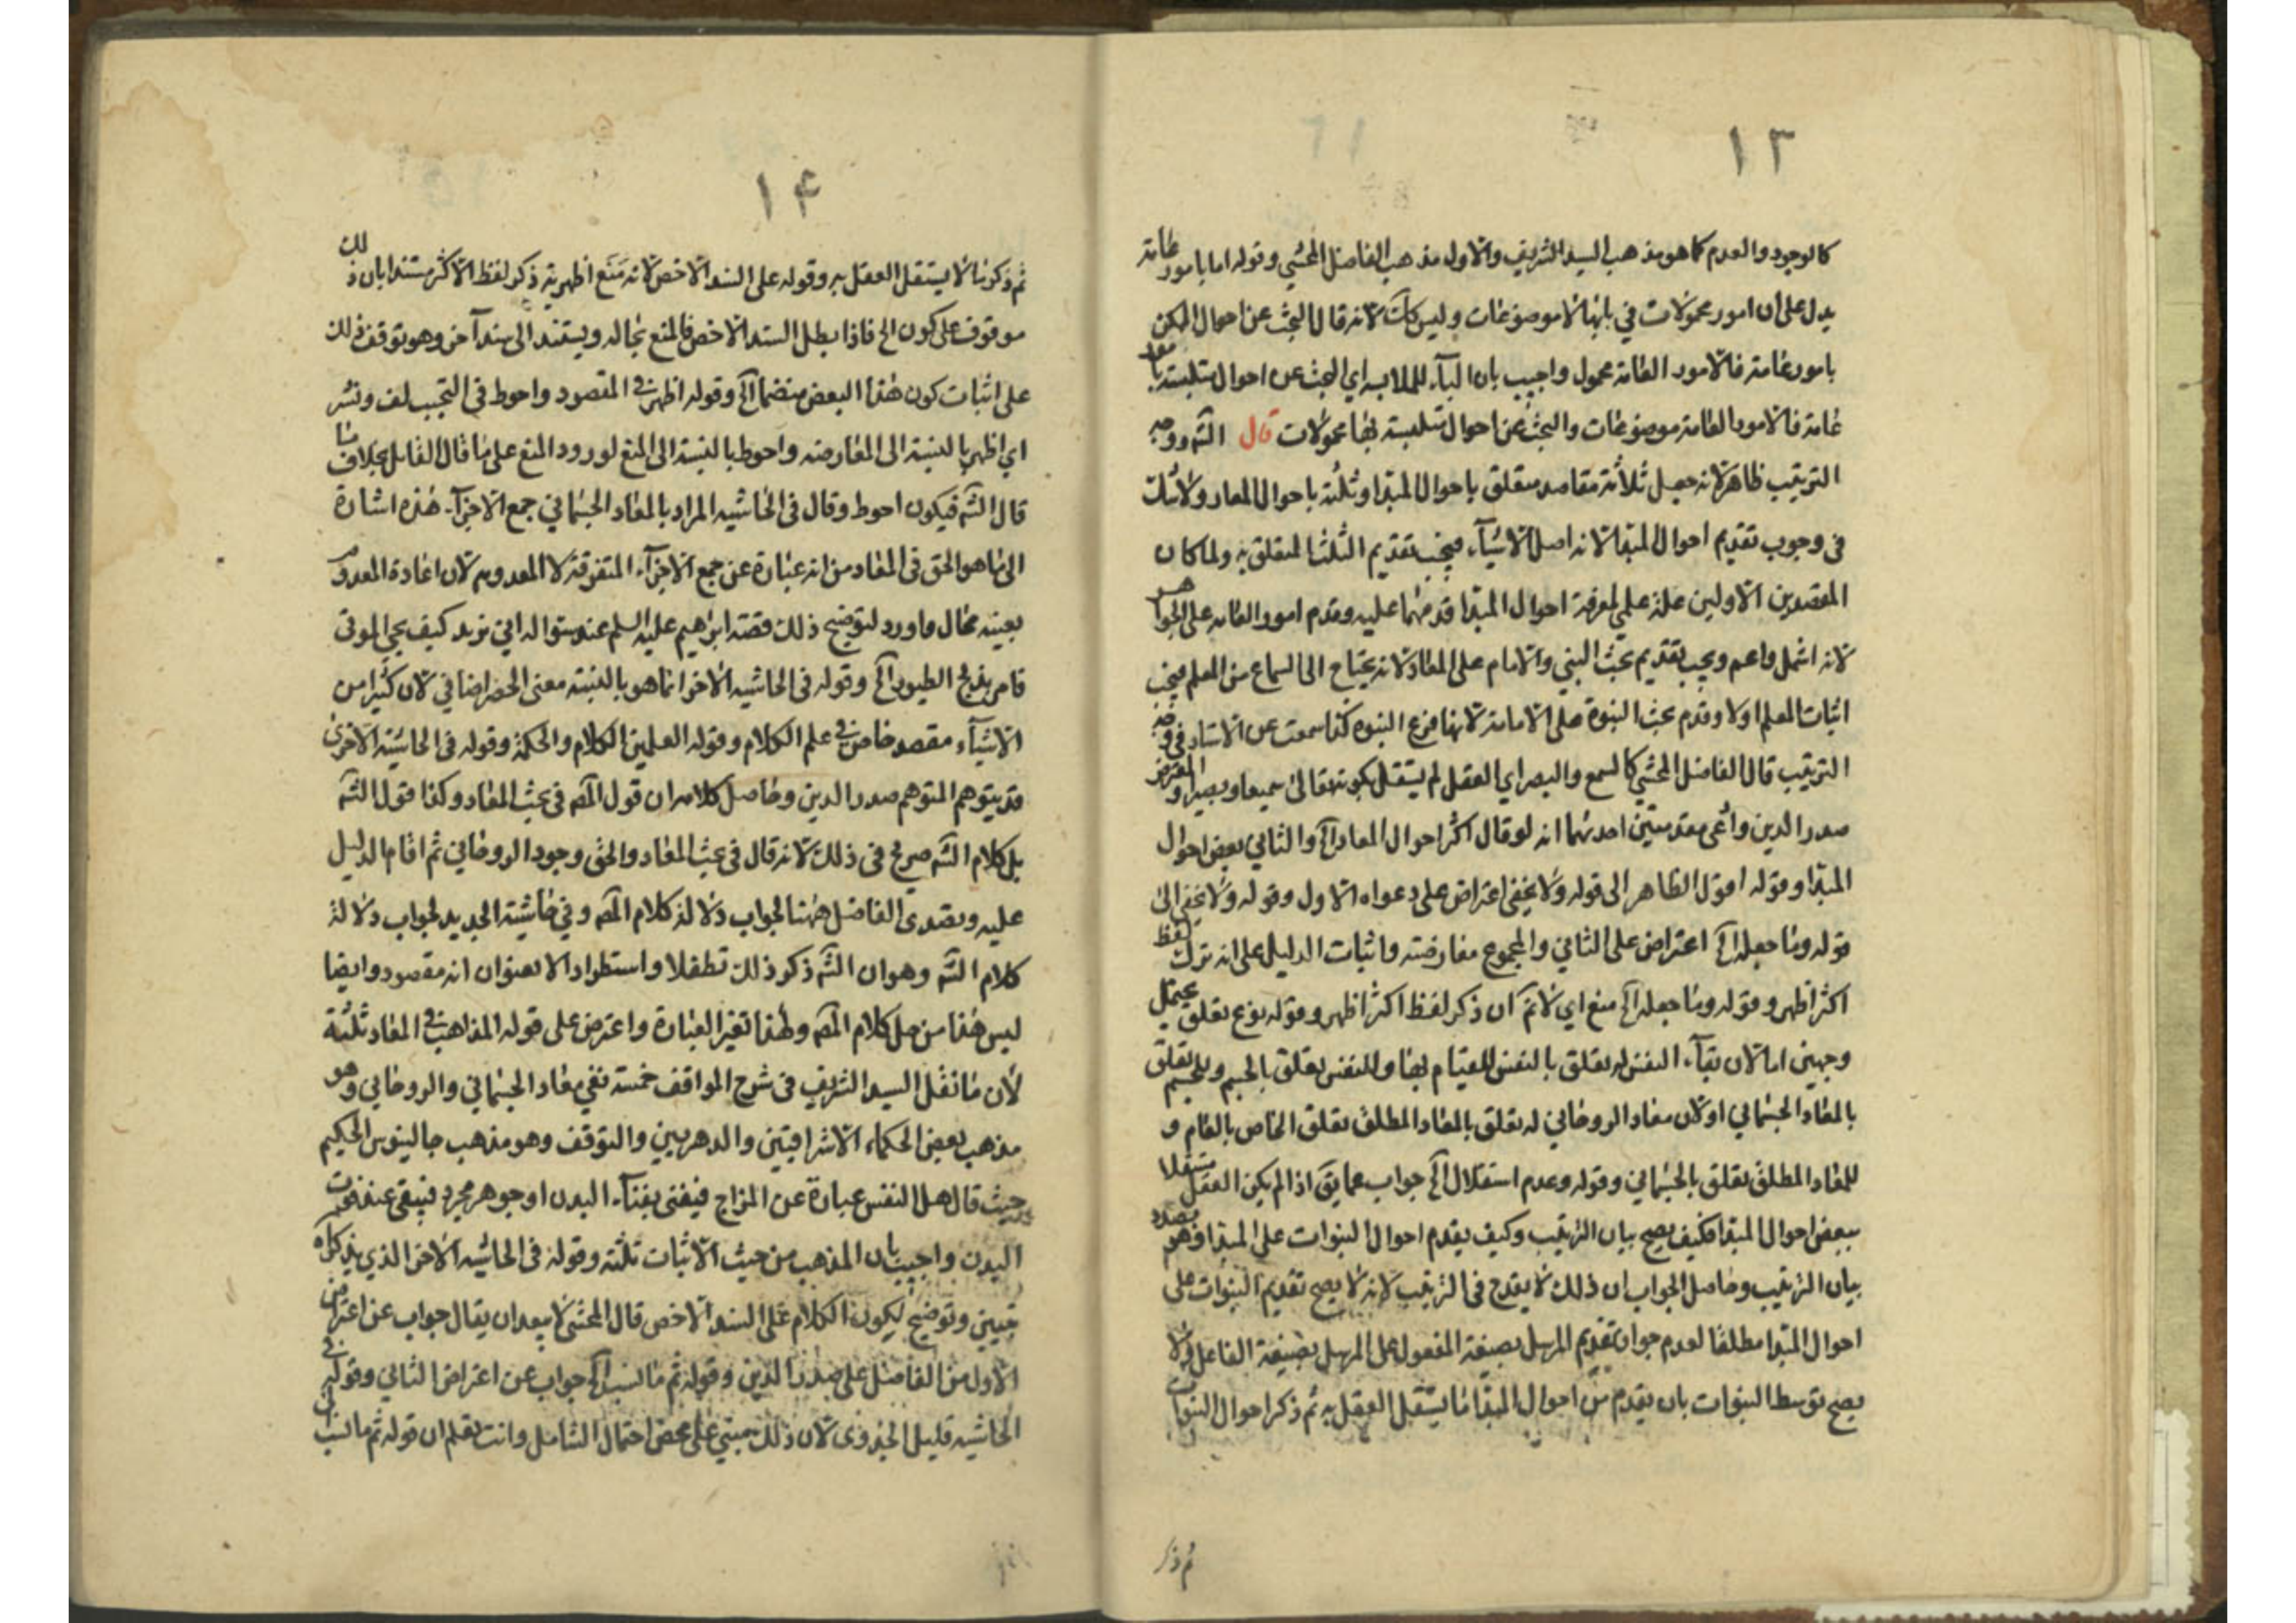 ١٣
كالوجود والعدم كما هو مذهب السيد الشريف والاول مذهب الفاضل المحشي وقوله اما بامور عامة
يدل على ان امور محمولات في بابها لا موضوعات وليس كك لانه قال البحث عن احوال الممكن
بامور عامة فالامور العامة محمول واجيب بان الباء للملابسة اي البحث عن احوال متلبسة بامور
عامة فالامور العامة موضوعات والبحث عن احوال متلبسة بها محمولات قال الشه ووجه
الترتيب ظاهر لانه جعل ثلاثة مقاصد متعلق باحوال المبدا وثلثة باحوال المعاد ولا شك
في وجوب تقديم احوال المبدا لانه اصل الاشياء فيجب تقديم الثلث المتعلق به ولما كان
المقصدين الاولين علة على لمعرفة احوال المبدا قدمهما عليه وقدم امور العامة على الجواهر
لانه اشمل واعم ويجب تقديم بحث النبي والامام على المعاد لانه يحتاج الى السماع من المعلم فيجب
اثبات المعلم اولا وقدم بحث النبوة على الامامة لانها فرع النبوة كذا سمعت عن الاستاد في وجه
الترتيب قال الفاضل المحشي كالسمع والبصر اي العقل لم يستقل بكونه تعالى سميعا وبصيرا والمعترض
صدر الدين وادعى مقدمتين احدهما انه لو قال اكثر احوال المعاد الخ والثاني بعض احوال
المبدا وقوله اقول الظاهر الى قوله ولا يخفى اعتراض على دعواه الاول وقوله ولا يخفى الى
قوله وما جعله الخ اعتراض على الثاني والمجموع معارضة واثبات الدليل على انه ترك لفظ
اكثر اظهر وقوله وما جعله الخ منع اي لا نم ان ذكر لفظ اكثر اظهر وقوله نوع تعلق يحتمل
وجهين اما لان بقاء النفس له تعلق بالنفس للقيام بها وللنفس تعلق بالجسم وللجسم تعلق
بالمعاد الجسماني او لان معاد الروحاني له تعلق بالمعاد المطلق تعلق الخاص بالعام و
للمعاد المطلق تعلق بالجسماني وقوله وعدم استقلال الخ جواب عما يق اذا لم يكن العقل مستقلا
ببعض احوال المبدا فكيف يصح بيان الترتيب وكيف يقدم احوال النبوات على المبدا وهو بصدد
بيان الترتيب وحاصل الجواب ان ذلك لا يقدح في الترتيب لانه لا يصح تقديم النبوات على
احوال المبدا مطلقا لعدم جواز تقديم المرسل بصيغة المفعول على المرسل بصيغة الفاعل ولا
يصح توسط النبوات بان يقدم من احوال المبدا ما يستقل العقل به ثم ذكر احوال النبوات
ثم ذكر
١۴
ثم ذكر ما لا يستقل العقل به وقوله على السند الاخص لانه منع اظهرية ذكر لفظ الاكثر مستندا بان ذلك
موقوف على كون الخ فاذا بطل السند الاخص فالمنع بحاله ويستند الى سند آخر وهو توقف ذلك
على اثبات كون هذا البعض منضما الخ وقوله اظهر في المقصود واحوط في التجنب لف ونشر
اي اظهر بالنسبة الى المعارضة واحوط بالنسبة الى المنع لورود المنع على ما قال القائل بخلاف ما
قال الشه فيكون احوط وقال في الحاشية المراد بالمعاد الجسماني جمع الاجزاء هذه اشارة
الى ما هو الحق في المعاد من انه عبارة عن جمع الاجزاء المتفرقة لا المعدوم لان اعادة المعدوم
بعينه محال وما ورد لتوضيح ذلك قصة ابراهيم عليه السلم عند سواله اني نريد كيف يحيي الموتى
فامر بذبح الطيور الخ وقوله في الحاشية الاخر انما هو بالنسبة معنى الحصر اضافي لان كثيرا من
الاشياء مقصد خاص في علم الكلام وقوله العلمين الكلام والحكمة وقوله في الحاشية الاخرى
قد يتوهم المتوهم صدر الدين وحاصل كلامه ان قول المصه في بحث المعاد وكذا قول الشه
بل كلام الشه صريح في ذلك لانه قال في بحث المعاد والحق وجود الروحاني ثم اقام الدليل
عليه وتصدى الفاضل ههنا لجواب دلالة كلام المصه وفي حاشية الجديد لجواب دلالة
كلام الشه وهو ان الشه ذكر ذلك تطفلا واستطرادا لا بعنوان انه مقصود وايضا
ليس هذا من حل كلام المصه ولهذا تغير العبارة واعترض على قوله المذاهب في المعاد ثلثة
لان ما نقل السيد الشريف في شرح المواقف خمسة نفي معاد الجسماني والروحاني وهو
مذهب بعض الحكماء الاشراقيين والدهريين والتوقف وهو مذهب جالينوس الحكيم
حيث قال هل النفس عبارة عن المزاج فيفنى بفناء البدن او جوهر مجرد فيبقى عند موت
البدن واجيب بان المذهب من حيث الاثبات ثلثة وقوله في الحاشية الاخر الذي يذكراه
تبيين وتوضيح لكون الكلام على السند الاخص قال المحشي لا يبعد ان يقال جواب عن اعتراض
الاول من الفاضل على صدر الدين وقوله ثم ما انسب الخ جواب عن اعتراض الثاني وقوله في
الحاشية قليل الجدوى لان ذلك مبني على محض احتمال الشامل وانت تعلم ان قوله ثم ما انسب